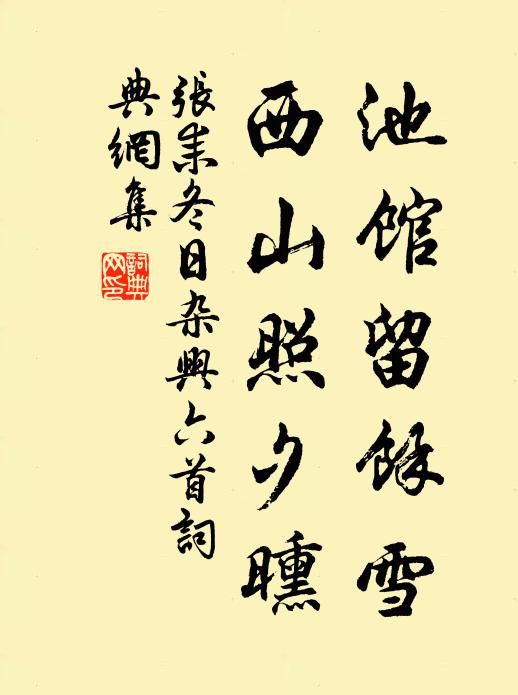 池館留餘雪
西山照夕曛
張耒冬日杂興六首詞
典網集
詞典網印